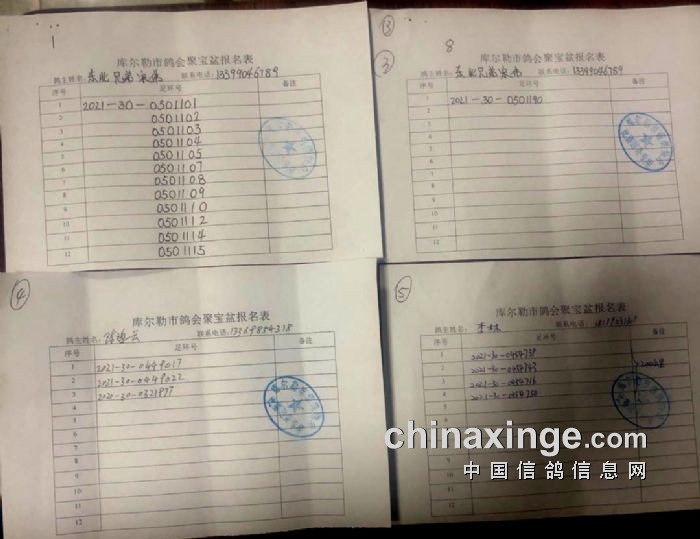 1
库尔勒市鸽会聚宝盆报名表
鸽主姓名: 东北兄弟宋弟 联系电话: 13399046789
序号 足环号 备注
1 2021-30-0501101
2 0501102
3 0501103
4 0501104
5 0501105
6 0501107
7 0501108
8 0501109
9 0501110
10 0501112
11 0501114
12 0501115
③
8
③
库尔勒市鸽会聚宝盆报名表
鸽主姓名: 东北兄弟宋弟 联系电话: 13399046789
序号 足环号 备注
1 2021-30-0501190
2
3
4
5
6
7
8
9
10
11
12
④
库尔勒市鸽会聚宝盆报名表
鸽主姓名: 联系电话:
序号 足环号 备注
1 2021-30-0449017
2 2021-30-0449022
3 2020-30-0321977
4
5
6
7
8
9
10
11
12
⑤
库尔勒市鸽会聚宝盆报名表
鸽主姓名: 李林 联系电话:
序号 足环号 备注
1 2021-30-0454739
2 2021-30-0454743
3 2021-30-0454716
4 2021-30-0454750
5
6
7
8
9
10
11
12
chinaxinge.com
中国信鸽信息网